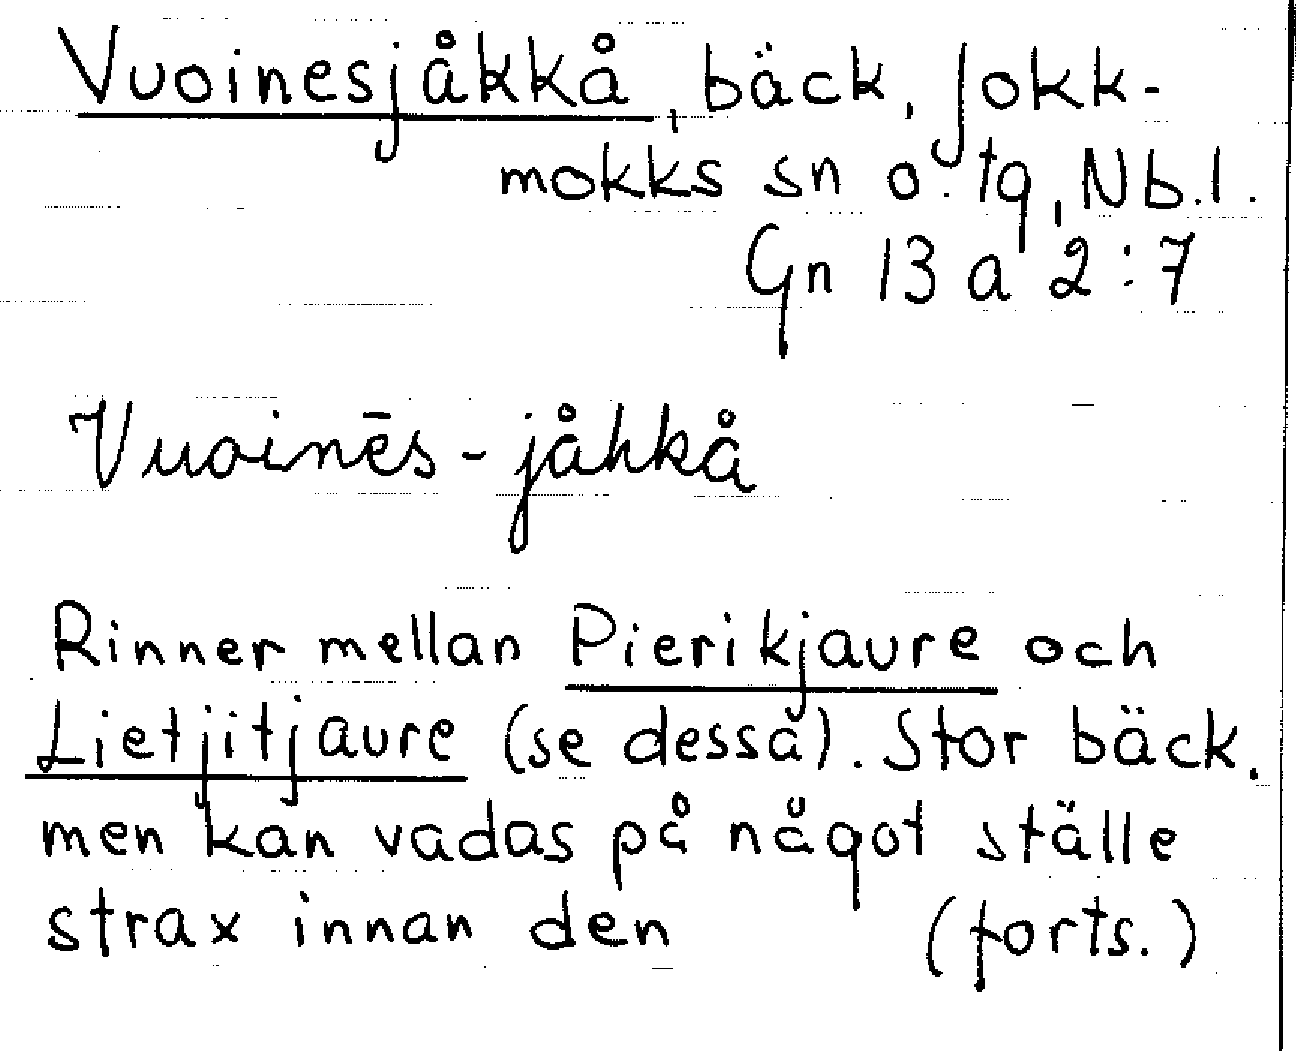 Vuoinesjåkkå, bäck, Jokk-
mokks sn o. tg, Nb.l.
Gn 13 a 2:7
Vuoinēs-jåhkå
Rinner mellan Pierikjaure och
Lietjitjaure (se dessa). Stor bäck,
men kan vadas på något ställe
strax innan den (forts.)